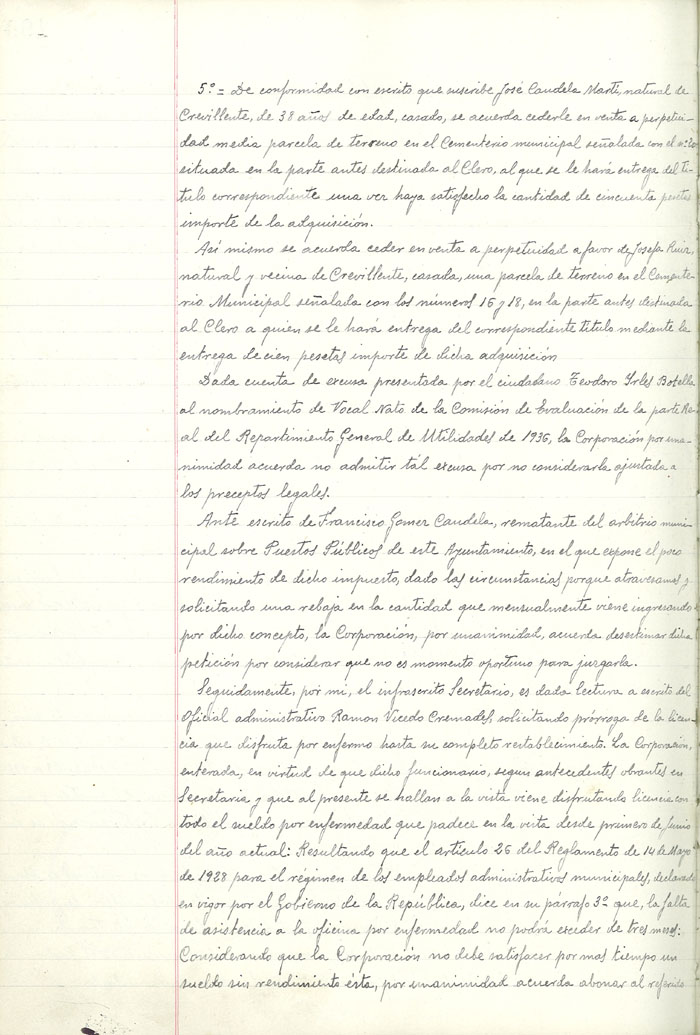 5º = De conformidad con escrito que suscribe José Candela Martí, natural de
Crevillente, de 38 años de edad, casado, se acuerda cederle en venta a perpetui-
dad media parcela de terreno en el Cementerio municipal señalada con el nº
situada en la parte antes destinada al Clero, al que se le hará entrega del tí-
tulo correspondiente una vez haya satisfecho la cantidad de cincuenta pesetas
importe de la adquisición.
Así mismo se acuerda ceder en venta a perpetuidad a favor de Josefa Ruiz,
natural y vecina de Crevillente, casada, una parcela de terreno en el Cemente-
rio Municipal señalada con los números 16 y 18, en la parte antes destinada
al Clero a quien se le hará entrega del correspondiente titulo mediante la
entrega de cien pesetas importe de dicha adquisición
Dada cuenta de excusa presentada por el ciudadano Teodoro Irles Botella
al nombramiento de Vocal Nato de la Comisión de Evaluación de la parte Re-
al del Repartimiento General de Utilidades de 1936, la Corporación por una-
nimidad acuerda no admitir tál excusa por no considerarla ajustada a
los preceptos legales.
Ante escrito de Francisco Gomez Candela, rematante del arbitrio muni-
cipal sobre Puestos Públicos de este Ayuntamiento, en el que expone el poco
rendimiento de dicho impuesto, dado las circunstancias porque atravesamos y
solicitando una rebaja en la cantidad que mensualmente viene ingresando
por dicho concepto, la Corporación, por unanimidad, acuerda desestimar dicha
petición por considerar que no es momento oportuno para juzgarla.
Seguidamente, por mi, el infrascrito Secretario, es dada lectura a escrito del
Oficial administrativo Ramon Vicedo Cremades, solicitando prórroga de la licen-
cia que disfruta por enfermo hasta su completo restablecimiento. La Corporación,
enterada, en virtud de que dicho funcionario, segun antecedentes obrantes en
Secretaria y que al presente se hallan a la vista viene disfrutando licencia con
todo el sueldo por enfermedad que padece en la vista desde primero de Junio
del año actual: Resultando que el artículo 26 del Reglamento de 14 de Mayo
de 1928 para el régimen de los empleados administrativos municipales, declarado
en vigor por el Gobierno de la República, dice en su párrafo 3º que, la falta
de asistencia a la oficina por enfermedad no podrá exceder de tres meses:
Considerando que la Corporación no debe satisfacer por mas tiempo un
sueldo sin rendimiento ésta, por unanimidad acuerda abonar al referido